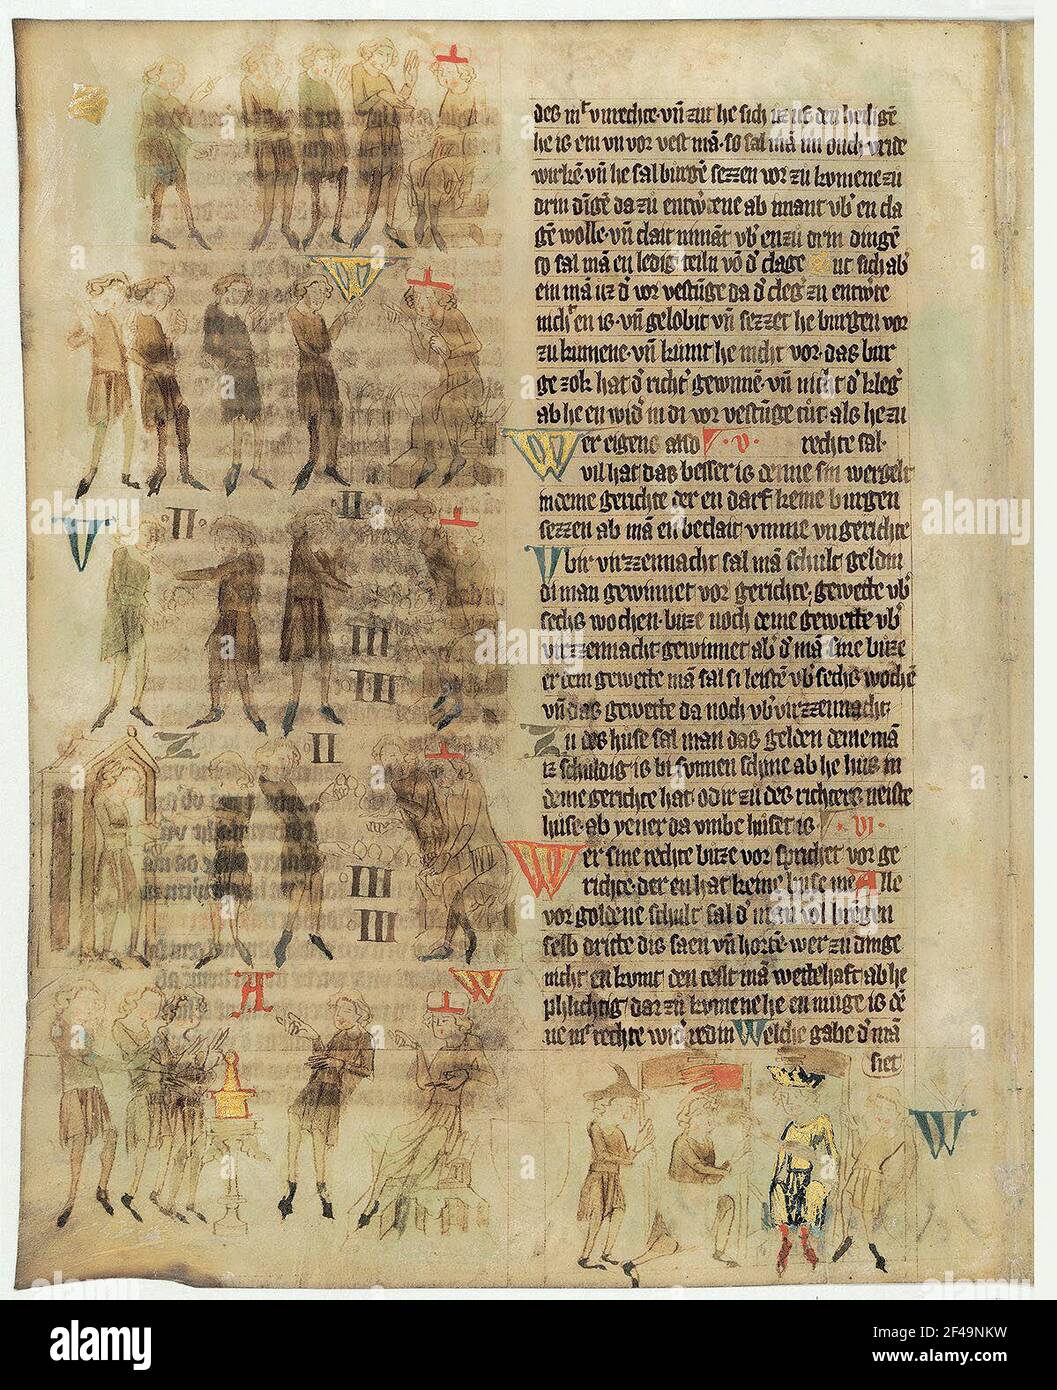 des mͬ vnrechte· vn̄ zut he sich iz uf den heiligē
he is ein vn vor vest mā· so sal mā im ouch vride
wirkē vn̄ he sal burgē sezzen vor zu komene zu
drin dīgē da zu entw̓tene ab imant vb̓ en cla
gē wolle· vn̄ clait nimāt vb̓ en zu drin dingē
so sal mā en ledig teiln vō d̓ clage Zut sich ab̓
ein mā uz d̓ vor vestūge da d̓ cleg̓ zu entw̓te
nich̓ en is· vn̄ gelobit vn̄ sezzet he burgen vor
zu kumene· vn̄ kumt he nicht vor· das bur
ge zok hat d̓ richt̓ gewunnē· vn̄ nicht d̓ kleg̓
ab he en wid̓ in di vor vestūge cūt· als he zu
W er eigens also V· rechte sal·
vil hat das besser is denne sin wergelt
in deme gerichte der en darf keine burgen
sezzen ab mā en beclait vmme vngerichte
Vbir virzzennacht sal mā schult geldin
di man gewinnet vor gerichte· gewette vb̓
sechs wochen· buze noch deme gewette vb̓
virzzennacht· gewinnet ab̓ d̓ mā sine buze
er dem gewette mā sal si leistē vb̓ sechs wochē
vn̄ das gewette da noch vb̓ virzzennacht·
Zu des huse sal man das gelden deme mā
iz schuldig is bi sunnen schine ab he huis in
deme gerichte hat· odir zu des richters neiste
huse· ab yener da vmbe huset is ·VI·
Wer sine rechte buze vor sprichet vor ge
richte· der en hat keine buse me Alle
vor goldene schult sal d̓ man vol brēgen
selb dritte dis saen vn̄ hortē· wer zu dinge
nicht en kumt den teilt mā wettehaft ab he
phlichtig dar zu kumene he en muge is dē
ne mͬ rechte wid̓ redin Welche gabe d̓ mā
siet
W
V
II
II
III
III
Z
II
III
III
A
W
W
alamy
Image ID: 2F49NKW
www.alamy.com